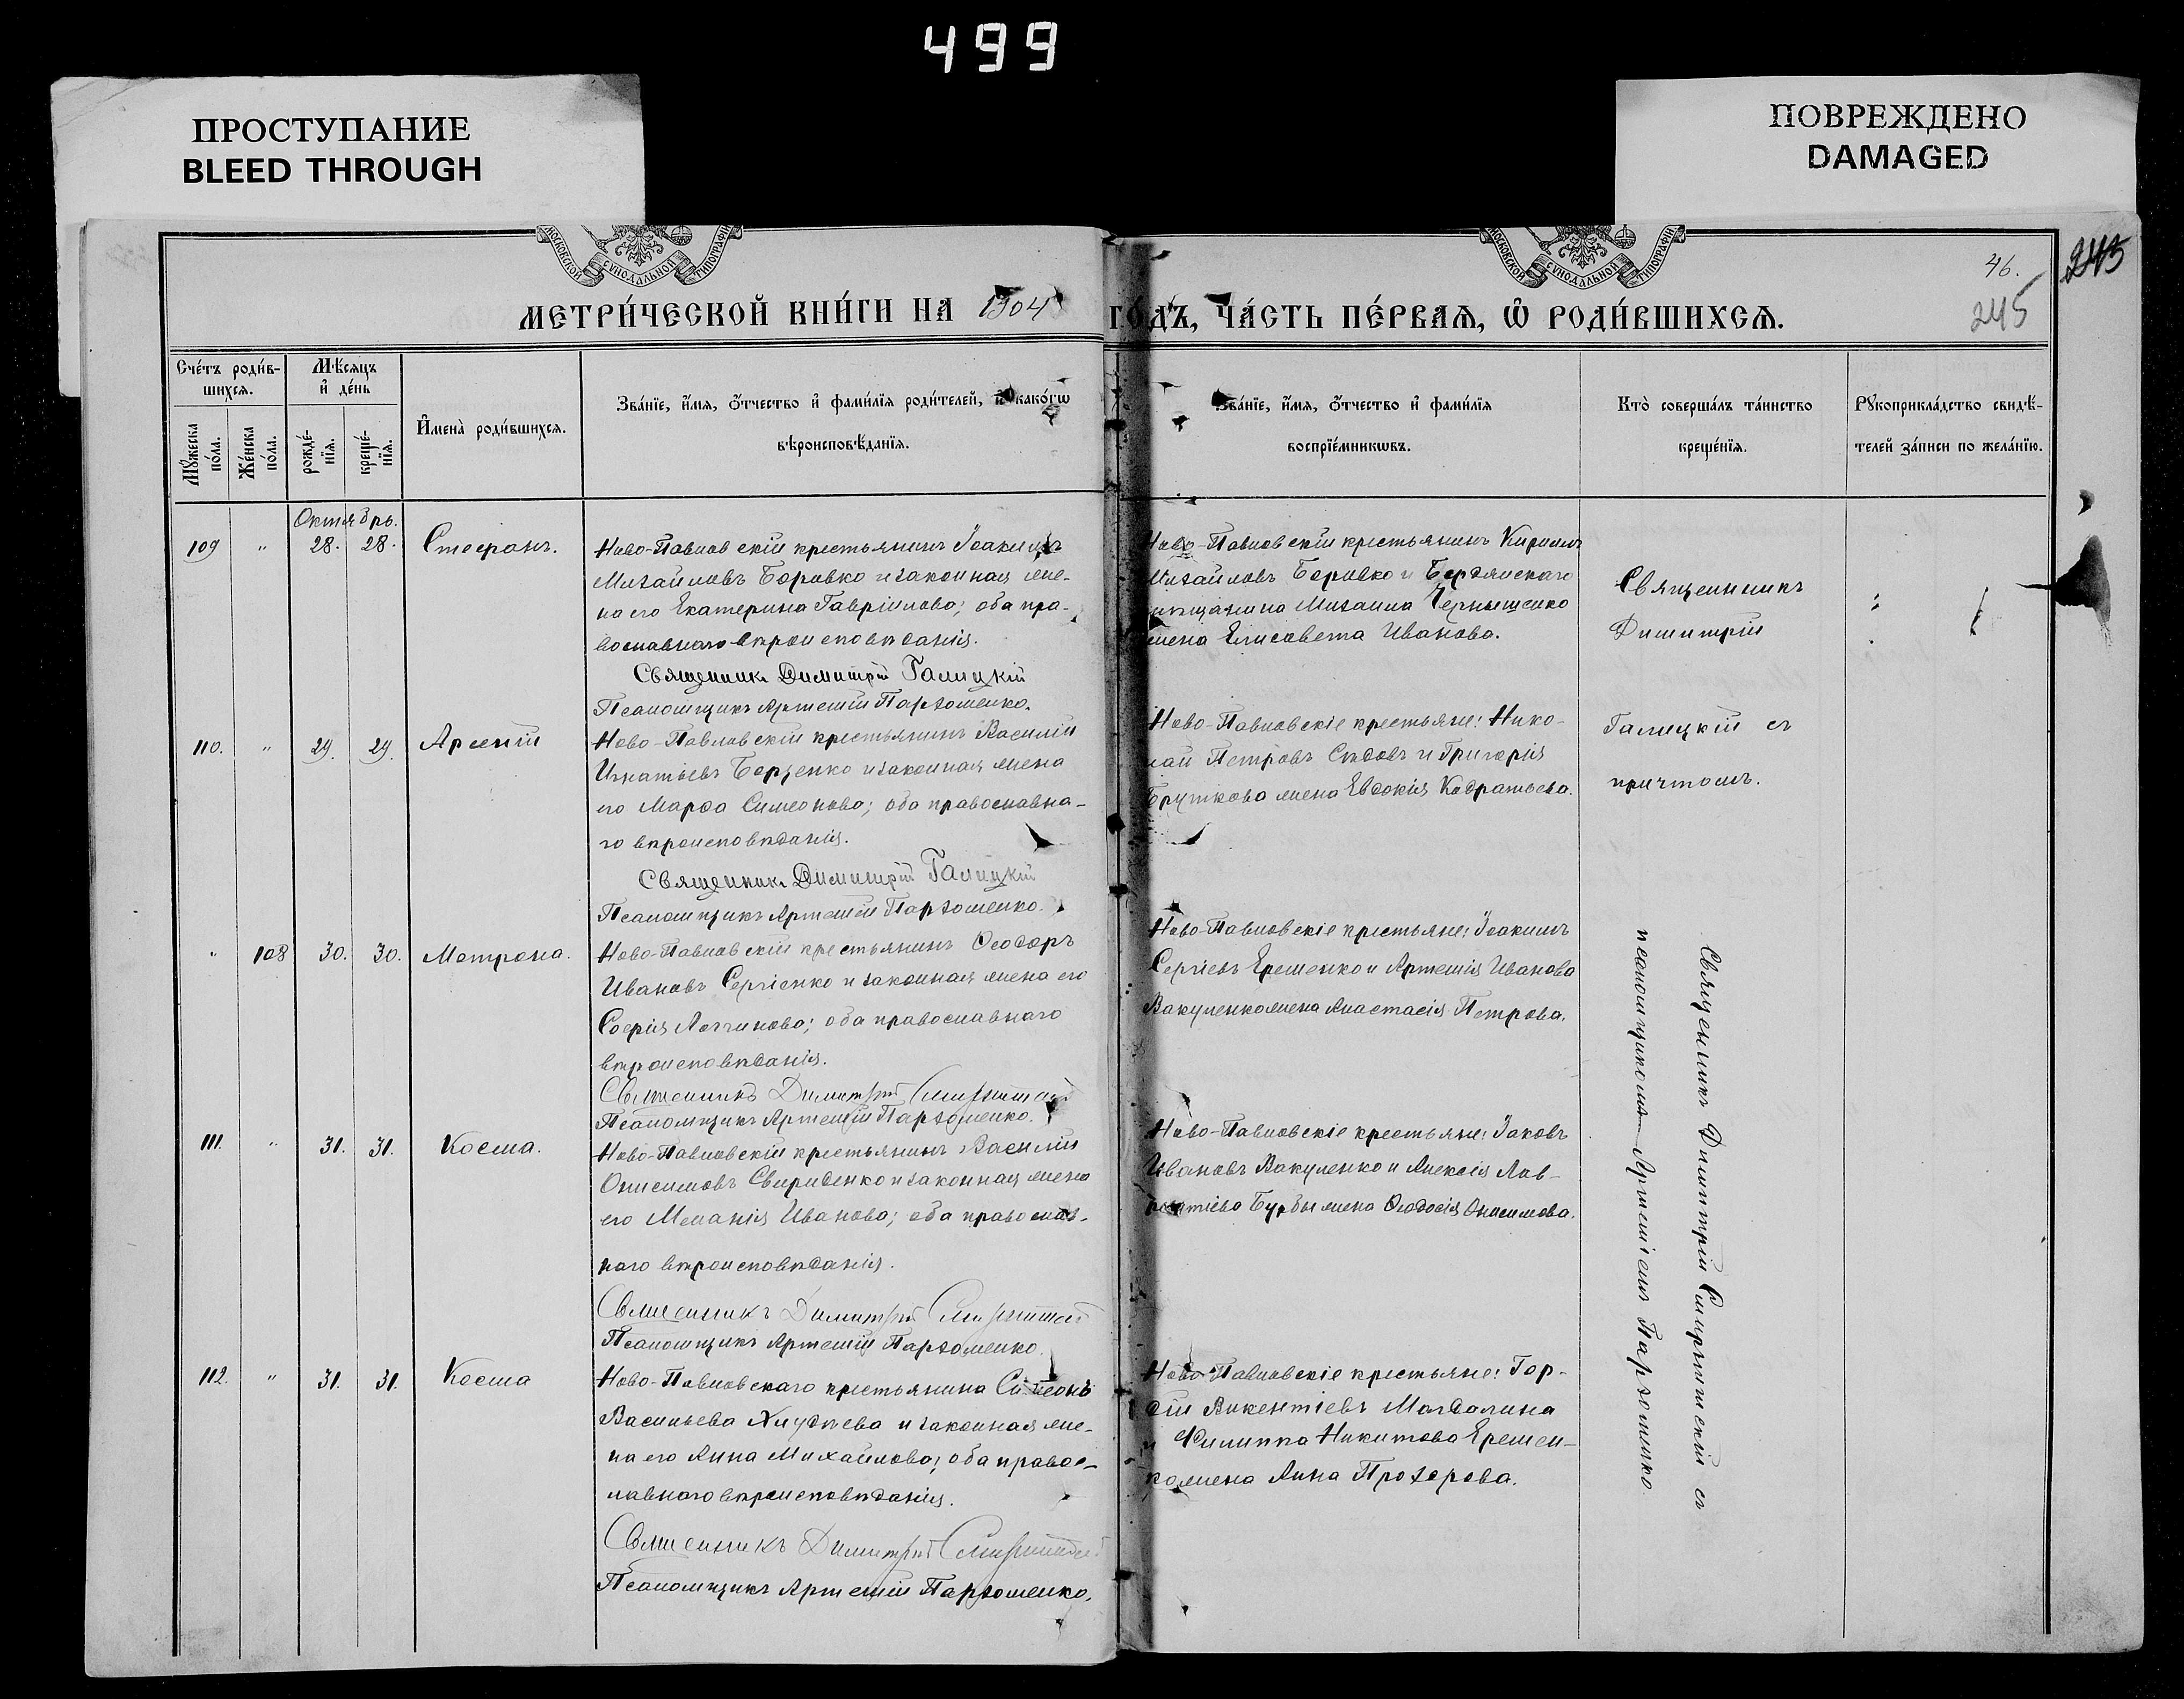 499
ПРОСТУПАНИЕ
BLEED THROUGH
ПОВРЕЖДЕНО
DAMAGED
МОСКОВСКОЙ СѴНОДАЛЬНОЙ ТИПОГРАФІИ
МОСКОВСКОЙ СѴНОДАЛЬНОЙ ТИПОГРАФІИ
46.
245
245
МЕТРИ́ЧЕСКОЙ КНИ́ГИ НА 1904 ГО́ДЪ, ЧА́СТЬ ПЕ́РВАѦ, Ѡ РОДИ́ВШИХСѦ.
Сче́тъ роди́в-
шихсѧ.
Мꙋ́жеска по́ла.
Же́нска по́ла.
Мѣ́сѧцъ
и҆ де́нь
рожде́-
нїѧ.
креще́-
нїѧ.
И҆мена̀ роди́вшихсѧ.
Зва́нїе, и҆́мѧ, ѻ҆́тчество и҆ фами́лїѧ роди́телей, и҆ како́гѡ
вѣроисповѣ́данїѧ.
Зва́нїе, и҆́мѧ, ѻ҆́тчество и҆ фами́лїѧ
воспрїе́мникѡвъ.
Кто̀ соверша́лъ та́инство
креще́нїѧ.
Рꙋкоприкла́дство свидѣ́-
телей за́писи по жела́нїю.
Октябрь.
109 " 28. 28. Стефанъ.
Ново-Павловскій крестьянинъ Іоакимъ
Михайловъ Боровко и законная же-
на его Екатерина Гавріилова; оба пра-
вославнаго вѣроисповѣданія.
Священникъ Димитрій Галицкій
Псаломщикъ Артемій Пархоменко.
Ново-Павловскій крестьянинъ Кириллъ
Михайловъ Боровко и Бердянскаго
мѣщанина Михаила Чернышенко
жена Елисавета Иванова.
Священникъ
Димитрій
Галицкій съ
причтомъ.
110. " 29. 29. Арсеній
Ново-Павловскій крестьянинъ Василій
Игнатьевъ Борзенко и законная жена
его Марфа Симеонова; оба православна-
го вѣроисповѣданія.
Священникъ Димитрій Галицкій
Псаломщикъ Артемій Пархоменко.
Ново-Павловскіе крестьяне: Нико-
лай Петровъ Сѣдовъ и Григорія
Бруткова жена Евдокія Кодратьева.
" 108 30. 30. Матрона.
Ново-Павловскій крестьянинъ Ѳеодоръ
Ивановъ Сергіенко и законная жена его
Софія Логгинова; оба православнаго
вѣроисповѣданія.
Священникъ Димитрій Смирнитскій
Псаломщикъ Артемій Пархоменко.
Ново-Павловскіе крестьяне: Іоакимъ
Сергіевъ Еременко и Артемія Иванова
Вакуленко жена Анастасія Петрова.
Священникъ Димитрій Смирнитскій съ
псаломщикомъ Артеміемъ Пархоменко
111. " 31. 31. Косма.
Ново-Павловскій крестьянинъ Василій
Онисимовъ Свириденко и законная жена
его Меланія Иванова; оба православ-
наго вѣроисповѣданія.
Священникъ Димитрій Смирнитскій
Псаломщикъ Артемій Пархоменко.
Ново-Павловскіе крестьяне: Іаковъ
Ивановъ Вакуленко и Алексія Лав-
рентіева Бурбы жена Ѳеодосія Онисимова.
112. " 31. 31. Косма
Ново-Павловскаго крестьянина Симеонъ
Васильева Хлудѣева и законная же-
на его Анна Михайлова; оба правос-
лавнаго вѣроисповѣданія.
Священникъ Димитрій Смирнитскій
Псаломщикъ Артемій Пархоменко.
Ново-Павловскіе крестьяне: Гор-
дій Викентіевъ Магдалина
и Филиппа Никитова Еремен-
ко жена Анна Прохорова.